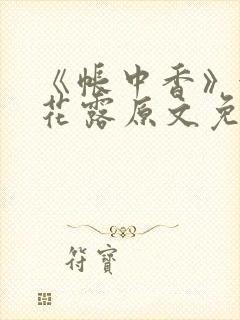 《帐中香》
花露原文免
符寶